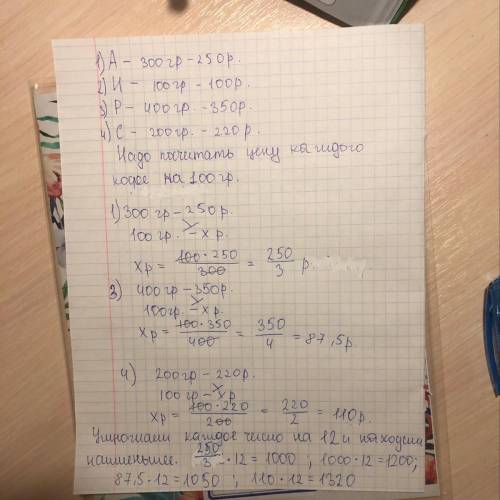 1) А – 300гр – 250р.
2) И – 100гр – 100р.
3) Р – 400гр – 350р.
4) С – 200гр. – 220р.
Надо посчитать цену каждого
кофе на 100гр.
1) 300гр – 250р.
100гр. – хр.
хр = 100·250/300 = 250/3 р.
3) 400гр – 350р.
100гр. – хр.
хр = 100·350/400 = 350/4 = 87,5р
4) 200гр – 220р.
100гр – хр
хр = 100·220/200 = 220/2 = 110р.
Умножаем каждое число на 12 и находим
наименьшее. 250/3 · 12 = 1000 ; 1000·12 = 1200;
87,5·12 = 1050 ; 110·12 = 1320